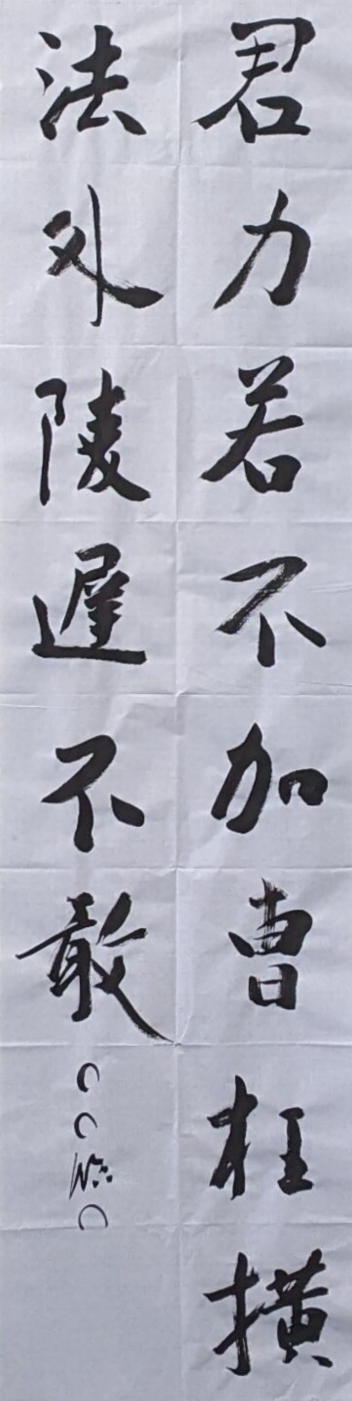 君力若不加曹枉横
法外陵遲不敢